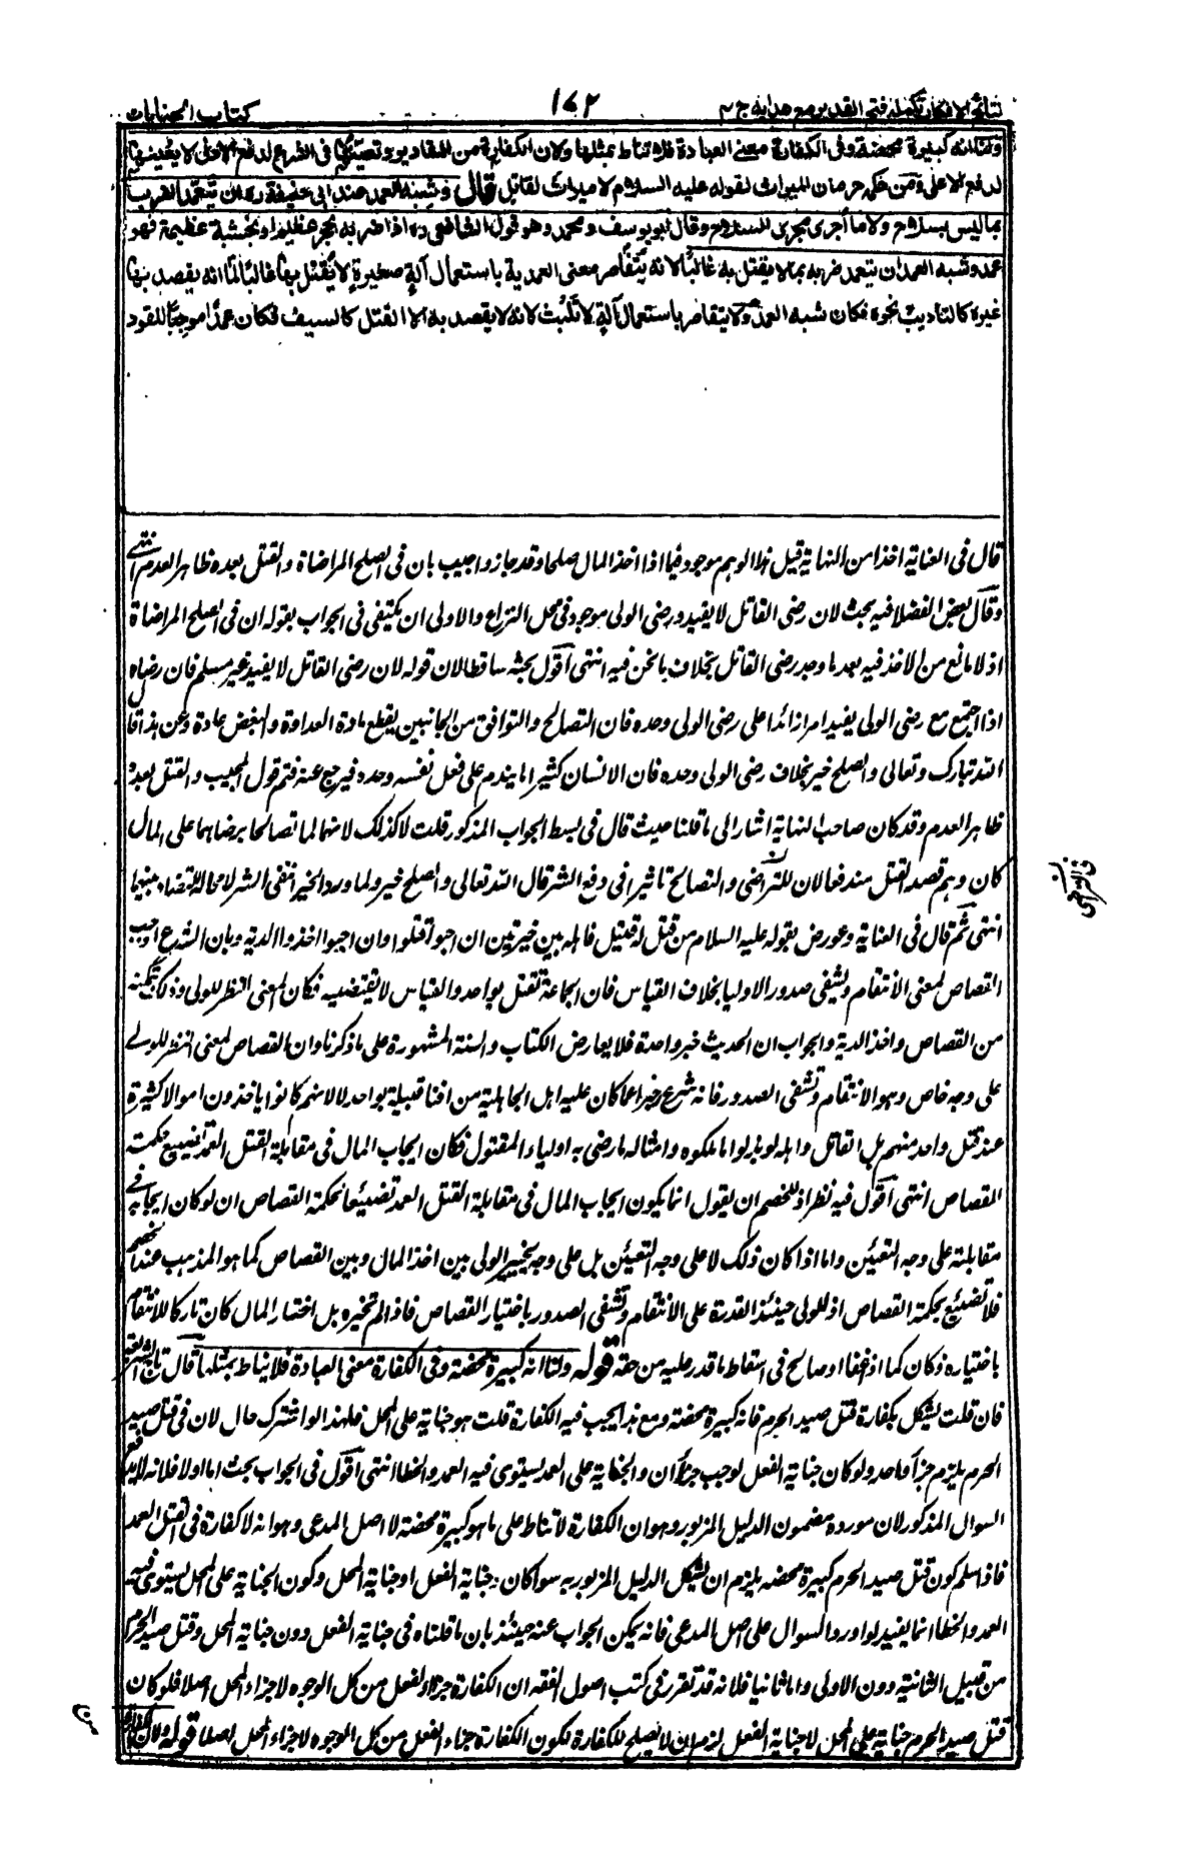 نتائج الافكار تكملة فتح القدير مع هدايه ج ٤
١٤٢
كتاب الجنايات
ولنا انه كبيرة محضة وفى الكفارة معنى العبادة فلا تناط بمثلها ولان الكفارة من المقادير وتعينها فى الشرع لدفع الادنى لا يعينها
لدفع الاعلى ومن حكمه حرمان الميراث لقوله عليه السلام لا ميراث لقاتل قال وشبه العمد عند ابى حنيفة ره ان يتعمد الضرب
بما ليس بسلاح ولا ما أجرى مجرى السلاح وقال ابو يوسف و محمد وهو قول الشافعى ره اذا ضربه بحجر عظيم او بخشبة عظيمة فهو
عمد وشبه العمد ان يتعمد ضربه بما لا يقتل به غالبا لانه يتقاصر معنى العمدية باستعمال آلةٍ صغيرةٍ لا يُقتل بها غالبًا لما انه يقصد بها
غيره كالتاديب ونحوه فكان شبه العمد ولا يتقاصر باستعمال آلةٍ لا تلبث لانه لا يقصد به الا القتل كالسيف فكان عمدًا موجبًا للقود
قال فى العناية اخذا من النهاية قيل هذا الوهم موجود فيما اذا اخذ المال صلحا وقد جاز واجيب بان فى الصلح المراضاة والقتل بعده ظاهر العدم انتهى
وقال بعض الفضلا فيه بحث لان رضى القاتل لا يفيد ورضى الولى موجود فى محل النزاع والاولى ان يكتفى فى الجواب بقوله ان فى الصلح المراضاة
اذ لا مانع من الاخذ فيه بعد ما وجد رضى القاتل بخلاف ما نحن فيه انتهى اقول بحثه ساقط لان قوله لان رضى القاتل لا يفيد غير مسلم فان رضاه
اذا اجتمع مع رضى الولى يفيد امرا زائدا على رضى الولى وحده فان التصالح والتوافق من الجانبين يقطع مادة العداوة والبغض عادة وعن هذا قال
الله تبارك وتعالى والصلح خير بخلاف رضى الولى وحده فان الانسان كثيرا ما يندم على فعل نفسه وحده فيرجع عنه فتم قول المجيب والقتل بعده
ظاهر العدم وقد كان صاحب النهاية اشار الى ما قلنا حيث قال فى بسط الجواب المذكور قلت لا كذلك لانهما لما تصالحا برضاهما على المال
كان وهم قصد القتل مندفعا لان للتراضى والتصالح تاثيرا فى دفع الشر قال الله تعالى والصلح خير ولما ورد الخير انتفى الشر لا محالة للتضاد بينهما
انتهى ثم قال فى العناية وعورض بقوله عليه السلام من قتل له قتيل فاهله بين خيرتين ان احبوا قتلوا وان احبوا اخذوا الدية وبان الشرع اوجب
القصاص لمعنى الانتقام وتشفى صدور الاوليا بخلاف القياس فان الجماعة تقتل بواحد والقياس لا يقتضيه فكان لمعنى النظر للولى وذلك بتمكنه
من القصاص واخذ الدية والجواب ان الحديث خبر واحدة فلا يعارض الكتاب والسنة المشهورة على ما ذكرنا وان القصاص لمعنى النظر للولى
على وجه خاص وهو الانتقام وتشفى الصدور فانه شرع زجرا عما كان عليه اهل الجاهلية من افنا قبيلة بواحد لا لانهم كانوا ياخذون اموالا كثيرة
عند قتل واحد منهم بل القاتل واهله لو بذلوا ما ملكوه وامثاله ما رضى به اولياء المقتول فكان ايجاب المال فى مقابلة القتل العمد تضييع حكمت
القصاص انتهى اقول فيه نظر اذ للخصم ان يقول انما يكون ايجاب المال فى مقابلة القتل العمد تضييعا لحكمة القصاص ان لو كان ايجابه فى
مقابلته على وجه التعيين واما اذا كان ذلك لا على وجه التعيين بل على وجه تخيير الولى بين اخذ المال وبين القصاص كما هو المذهب عند الخصم
فلا تضييع لحكمة القصاص اذ للولى حينئذ القدرة على الانتقام وتشفى الصدور باختيار القصاص فاذا لم تخيره بل اختار المال كان تاركا للانتقام
باختياره فكان كما اذا عفا او صالح فى اسقاط ما قدر عليه من حقه قوله ولنا انه كبيرة محضة وفى الكفارة معنى العبادة فلا يناط بمثلها قال تاج الشريعة
فان قلت يشكل بكفارة قتل صيد الحرم فانه كبيرة محضة ومع هذا يجب فيه الكفارة قلت هو جناية على المحل فلهذا لو اشترك حال لان فى قتل صيد
الحرم يلزم جزأ واحد ولو كان جناية الفعل لوجب جزأن والجناية على العمد يستوى فيه العمد والخطا انتهى اقول فى الجواب بحث اما اولا فلانه لا يدفع
السوال المذكور لان مورده مضمون الدليل المزبور وهو ان الكفارة لا تناط على ما هو كبيرة محضة لا اصل المدعى وهو انه لا كفارة فى القتل العمد
فاذا سلم كون قتل صيد الحرم كبيرة محضه يلزم ان يشكل الدليل المزبور به سوا كان جناية الفعل او جناية المحل وكون الجناية على المحل يستوى فيه
العمد والخطا انما يفيد لو اورد السوال على اصل المدعى فانه يمكن الجواب عنه حينئذ بان ما قلناه فى جناية الفعل دون جناية المحل وقتل صيد الحرم
من قبيل الثانية دون الاولى واما ثانيا فلانه قد تقرر فى كتب اصول الفقه ان الكفارة جزاء الفعل من كل الوجوه لا جزاء المحل اصلا فلو كان
قتل صيد الحرم جناية على المحل لا جناية الفعل لزم ان لا يصلح للكفارة لكون الكفارة جزاء الفعل من كل الوجوه لا جزاء المحل اصلا قوله ولان الكفارة